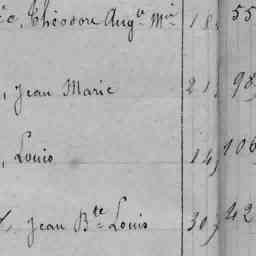 Théodore Aug.te M.in 18, 55
, Jean Marie 21, 98
, Louis 14, 106
, Jean B.te Louis 30, 42